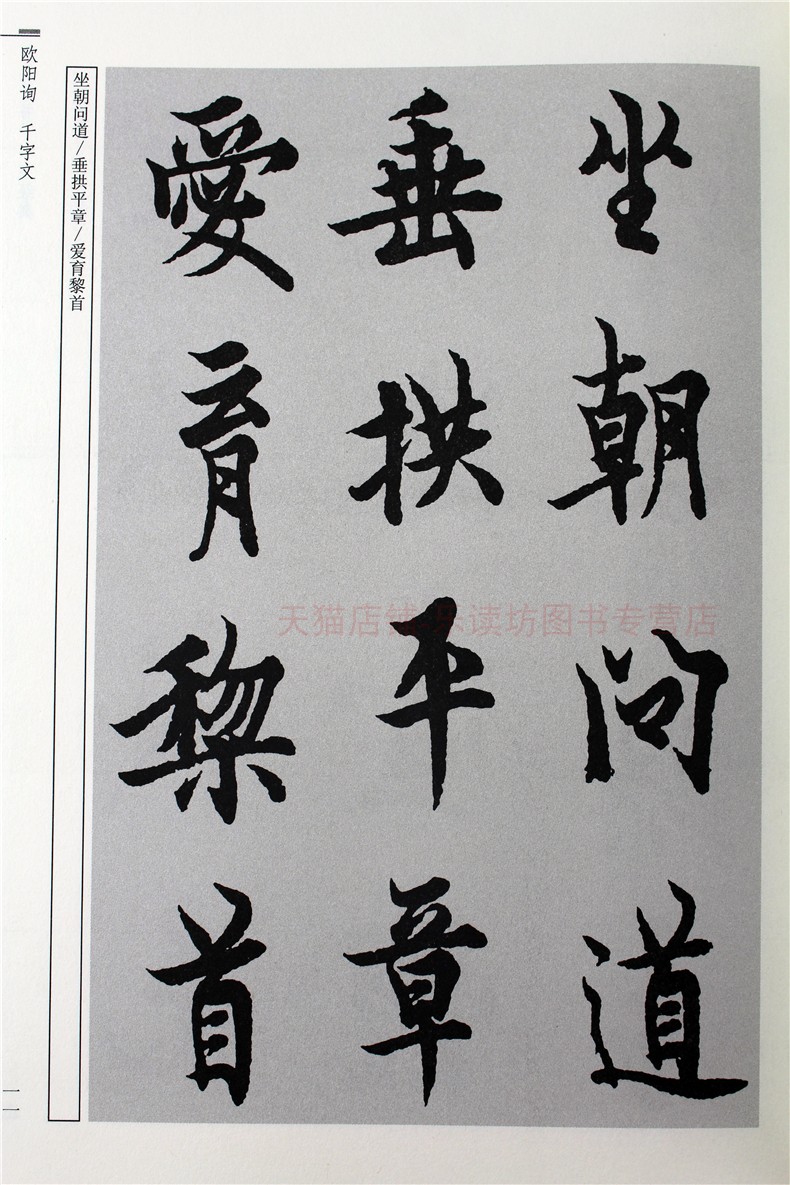 坐朝问道
垂拱平章
愛育黎首
坐朝问道/垂拱平章/爱育黎首
欧阳询 千字文
一一
天猫店铺 乐读坊图书专营店